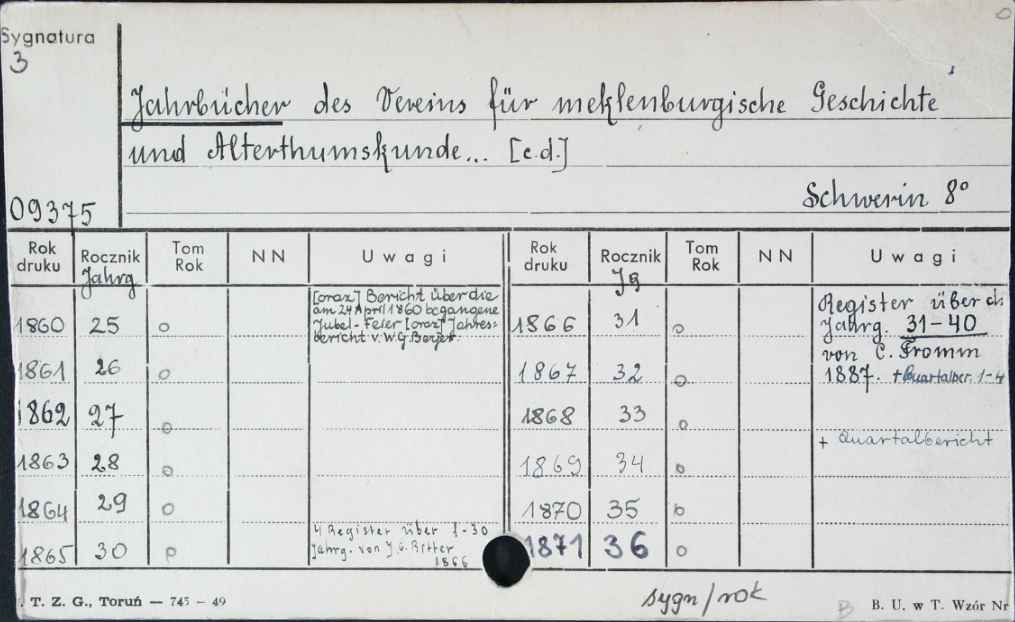 Sygnatura
3
Jahrbücher des Vereins für meklenburgische Geschichte
und Alterthumskunde... [c.d.]
Schwerin 8°
09375
Rok druku Rocznik Tom Rok NN Uwagi Rok druku Rocznik Tom Rok NN Uwagi
Jahrg Jg
[oraz] Bericht über die
am 24 April 1860 begangene
Jubel-Feier [oraz] Jahres=
bericht v. W.G. Beyer.
Register über d.
Jahrg. 31-40
von C. Fromm
1887. + Quartalber. 1-4
1860 25 o 1866 31 o
1861 26 o 1867 32 o
1862 27 o 1868 33 o
+ Quartalbericht
1863 28 o 1869 34 o
1864 29 o 1870 35 o
4 Register über 1-30
Jahrg. von J.G. Ritter
1866
1865 30 1871 36 o
T. Z. G., Toruń — 745 – 49
sygn/rok
B B. U. w T. Wzór Nr